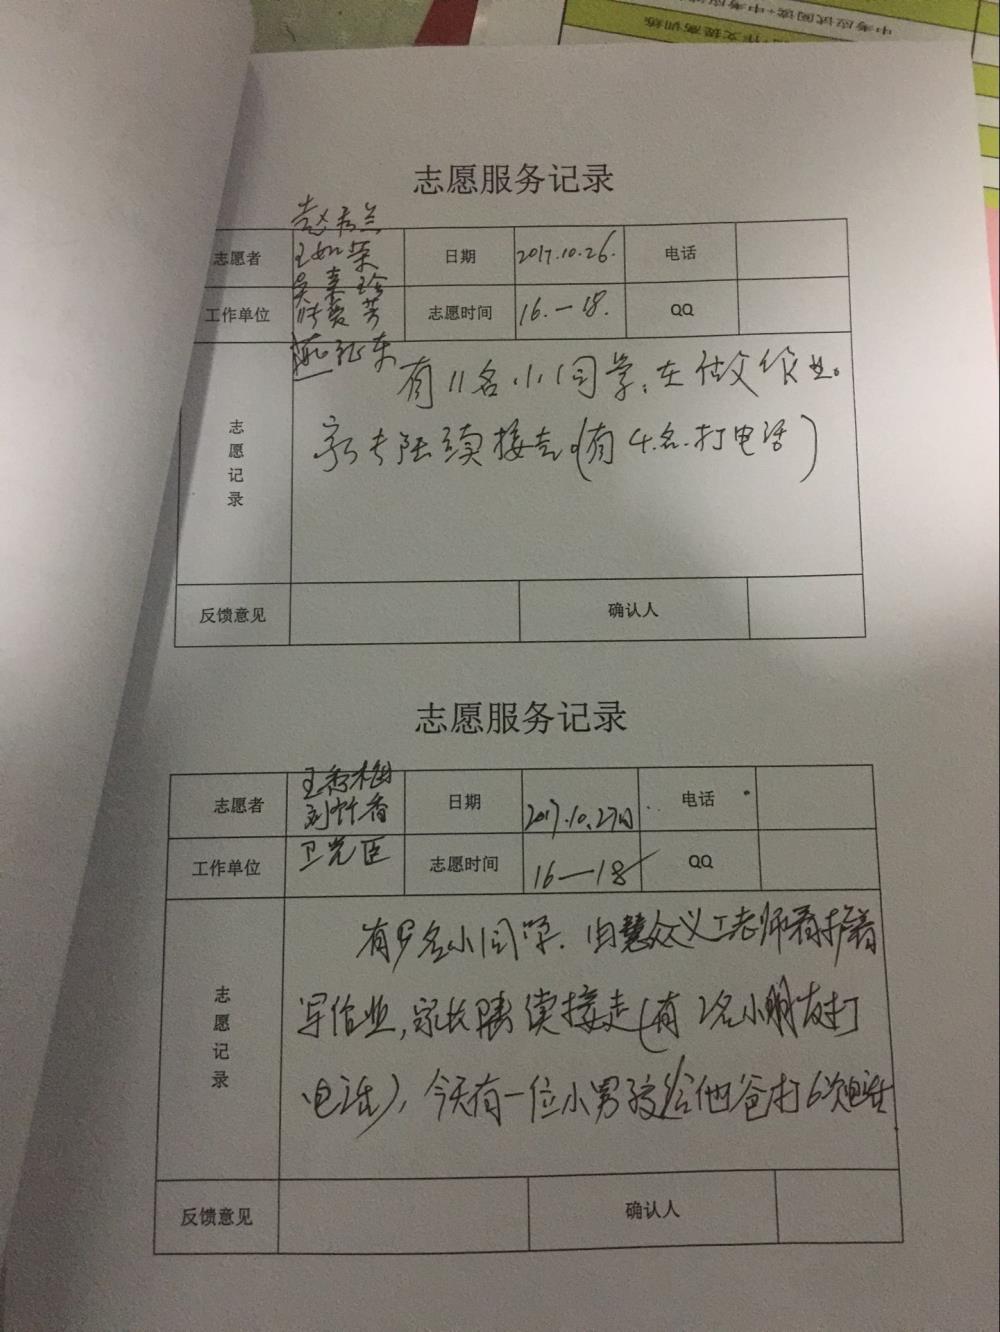 中考应试阅读+中考应
作文提高训练
志愿服务记录
志愿者 赵秀兰 王如荣 日期 2017.10.26. 电话
工作单位 芳 志愿时间 16.—18. QQ
征东
志愿记录
有11名小同学,在做作业。
家长陆续接走(有4名打电话)
反馈意见 确认人
志愿服务记录
志愿者 王香梅 刘竹香 日期 2017.10.27日 电话
工作单位 卫光臣 志愿时间 16—18 QQ
志愿记录
有9名小同学,由慧众义工老师看护着
写作业,家长陆续接走(有2名小朋友打
电话),今天有一位小男孩给他爸打6次电话
反馈意见 确认人